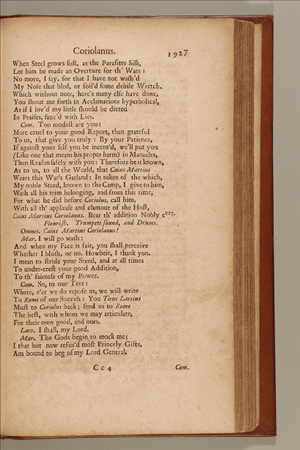 Coriolanus. 1927
When Steel grows soft, as the Parasites Silk,
Let him be made an Overture for th' Wars:
No more, I say, for that I have not wash'd
My Nose that bled, or foil'd some debile Wretch,
Which without note, here's many else have done,
You shout me forth in Acclamations hyperbolical,
As if I lov'd my little should be dieted
In Praises, sauc'd with Lies.
Com. Too modest are you:
More cruel to your good Report, than grateful
To us, that give you truly: By your Patience,
If against your self you be incens'd, we'll put you
(Like one that means his proper harm) in Manacles,
Then Reason safely with you: Therefore be it known,
As to us, to all the World, that Caius Martius
Wears this War's Garland: In token of the which,
My noble Steed, known to the Camp, I give to him,
With all his trim belonging, and from this time,
For what he did before Coriolus, call him,
With all th' applause and clamour of the Host,
Caius Martius Coriolanus. Bear th' addition Nobly ever.
Flourish. Trumpets sound, and Drums.
Omnes. Caius Martius Coriolanus!
Mar. I will go wash:
And when my Face is fair, you shall perceive
Whether I blush, or no. Howbeit, I thank you.
I mean to stride your Steed, and at all times
To under-crest your good Addition,
To th' fairness of my Power.
Com. So, to our Tent:
Where, e'er we do repose us, we will write
To Rome of our Success: You Titus Lartius
Must to Coriolus back; send us to Rome
The best, with whom we may articulate,
For their own good, and ours.
Lart. I shall, my Lord.
Mar. The Gods begin to mock me;
I that but now refus'd most Princely Gifts,
Am bound to beg of my Lord General.
C c 4 Com.